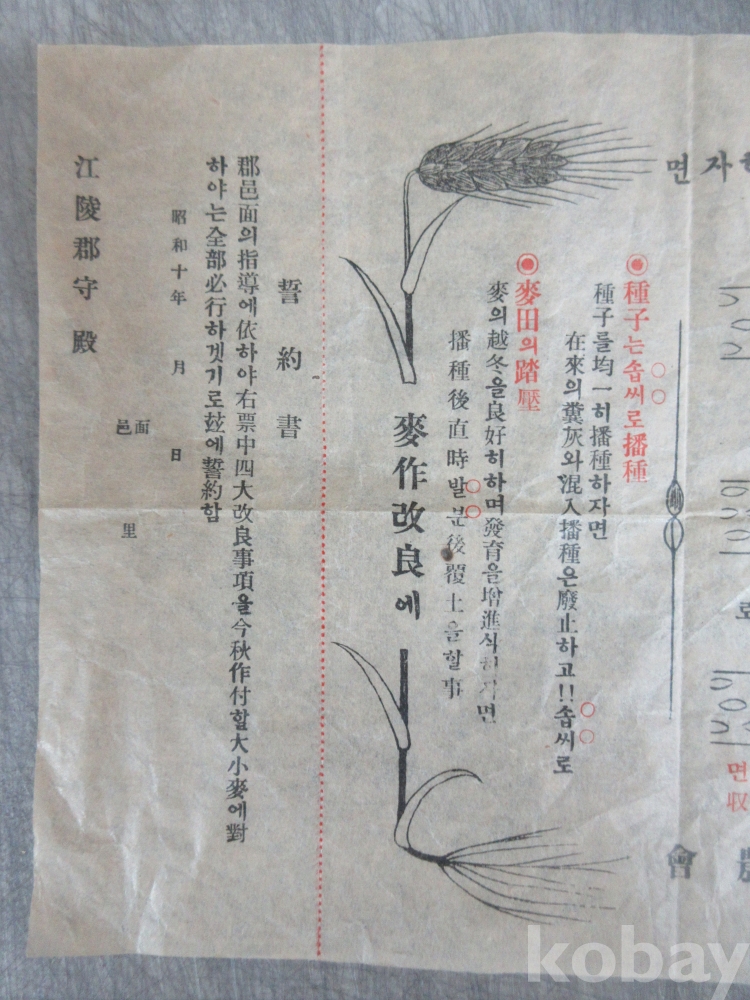 자면
農會
로
면
收
◉種子는솝씨로播種
種子를均一히播種하자면
在來의糞灰와混入播種은廢止하고!!솝씨로
◉麥田의踏壓
麥의越冬을良好히하며發育을增進식히자면
播種後直時발분後覆土을할事
麥作改良에
誓約書
郡邑面의指導에依하야右票中四大改良事項을今秋作付할大小麥에對
하야는全部必行하겟기로玆에誓約함
昭和十年 月 日
邑面 里
江陵郡守殿
kobay